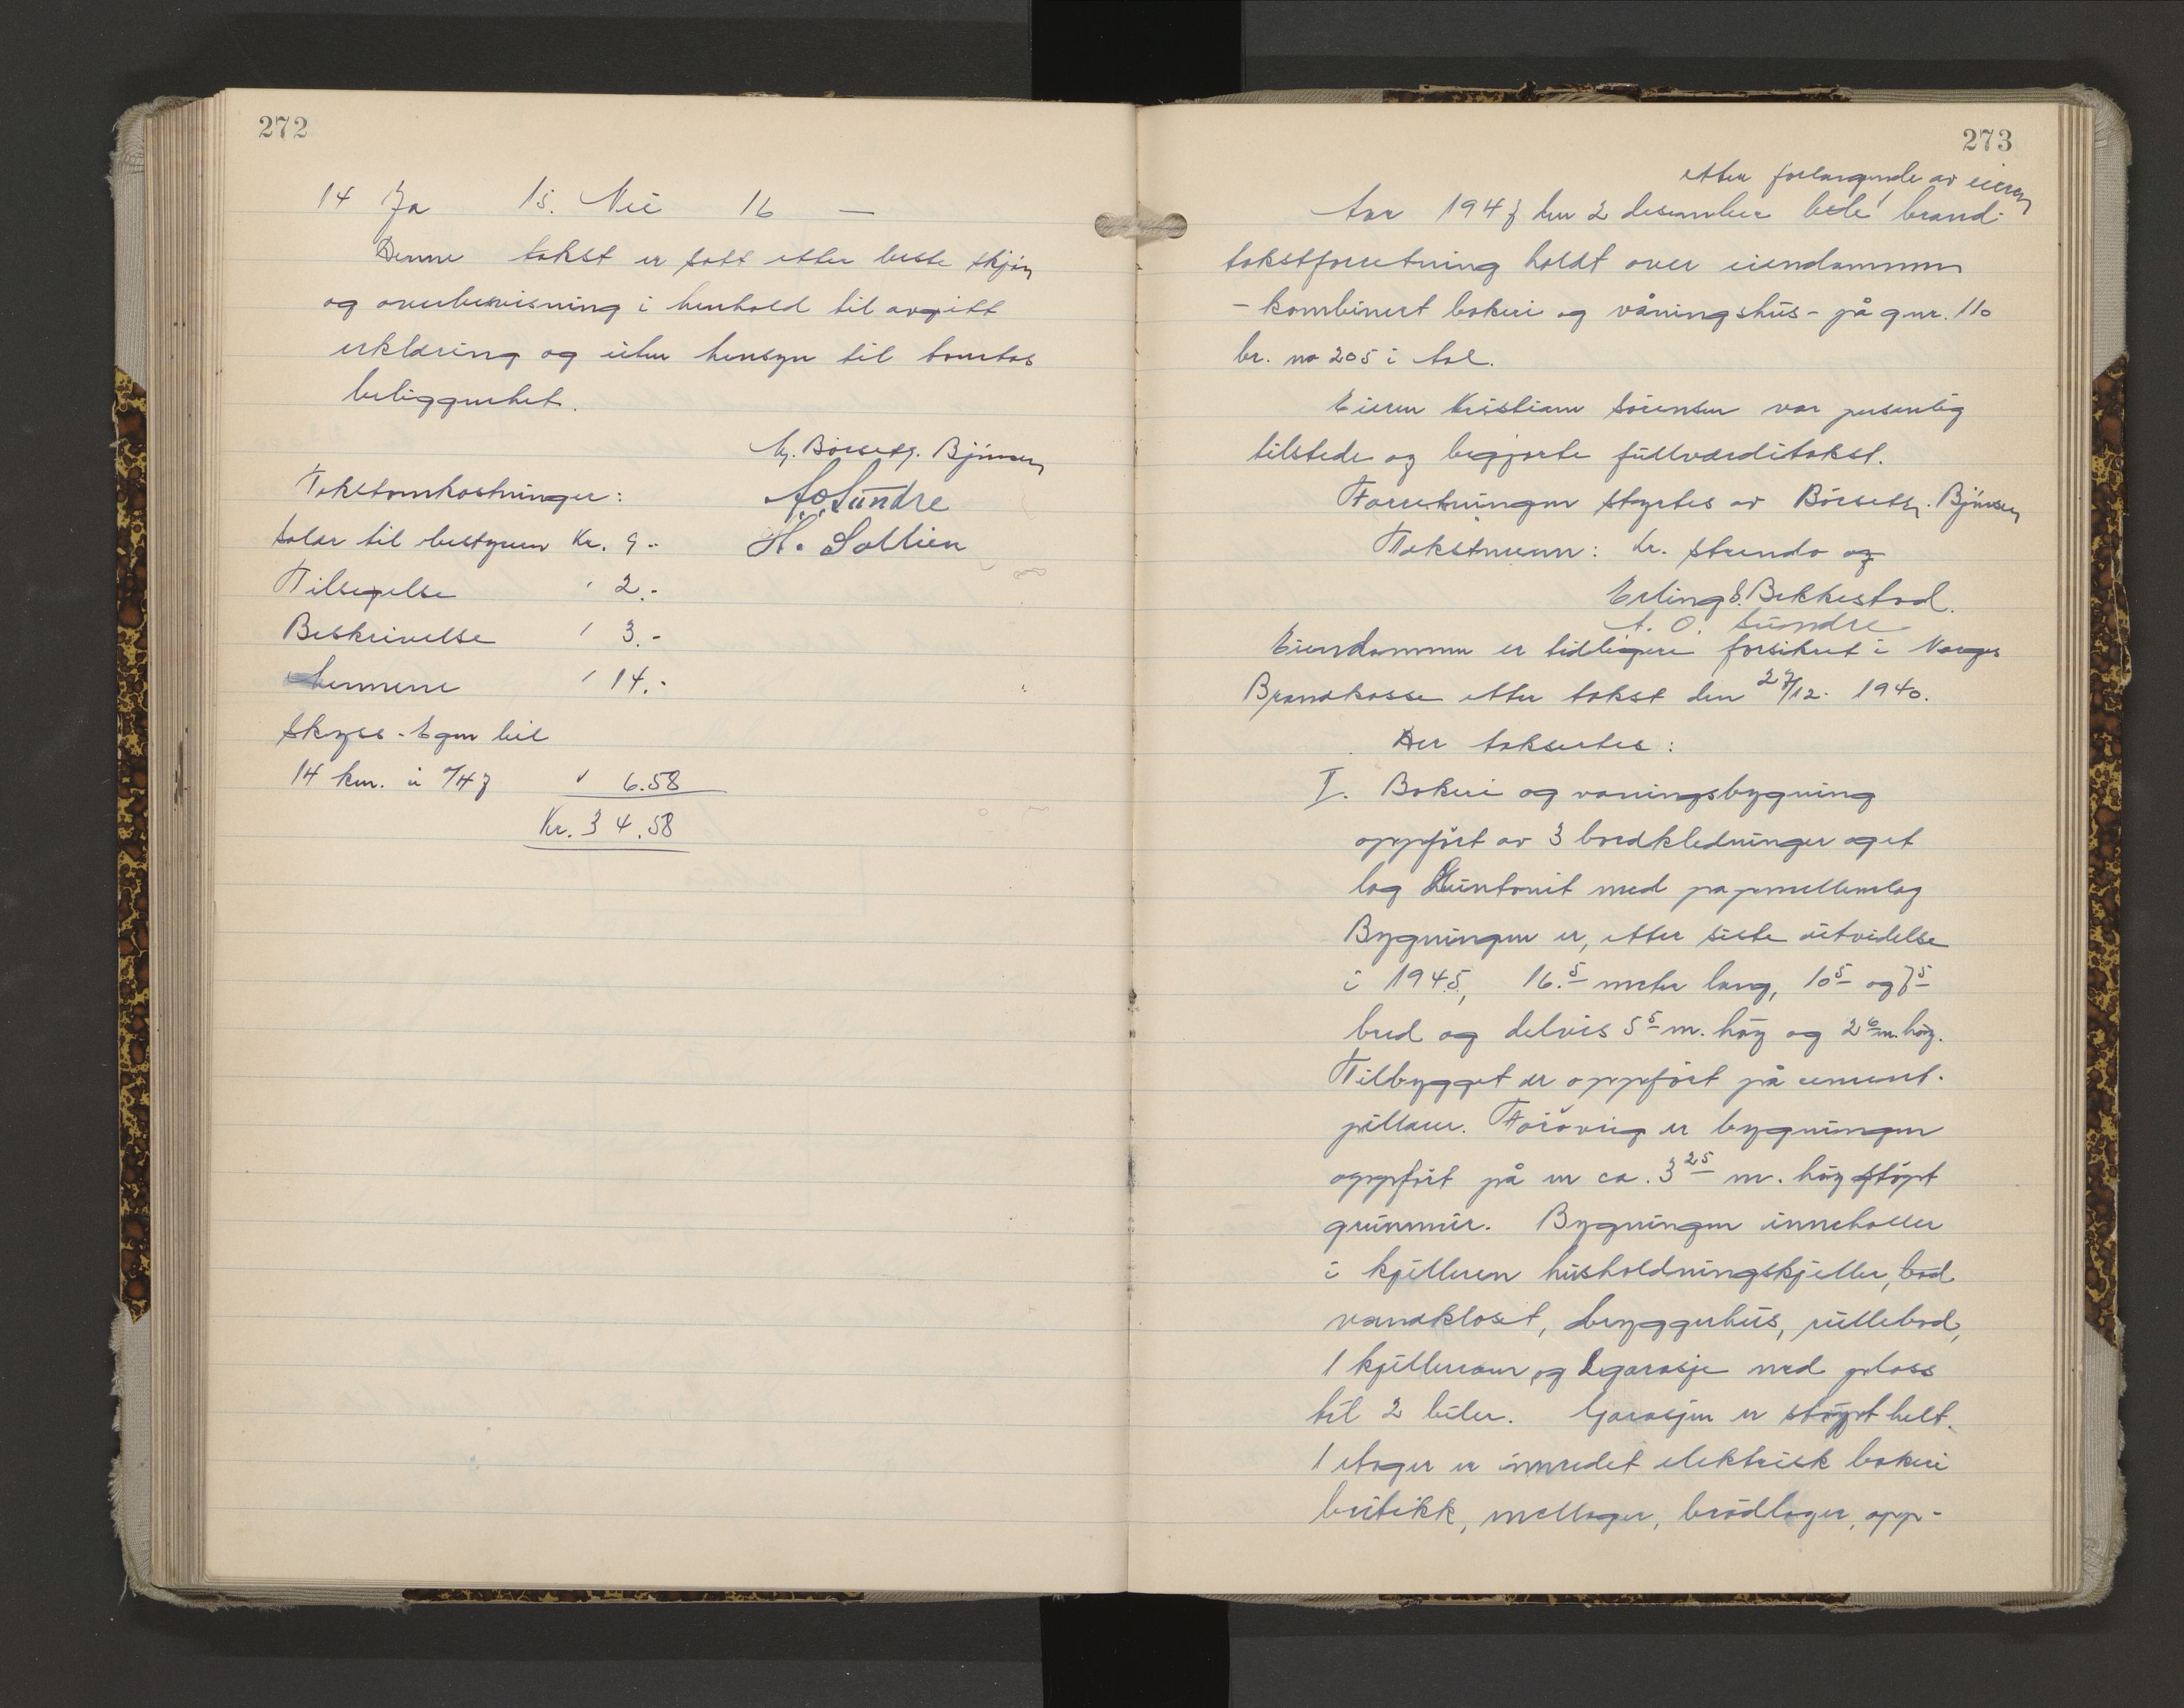 272
14 Ja 15. Nei 16 —
Denne takst er satt etter beste skjøn
og overbevisning i henhold til avgitt
erklæring og uten hensyn til tomtas
beliggenhet.
Bjørnsen
Takstomkostninger:
A.O. Sundre
Salær til bestyreren Kr. 9.-
H. Sollien
Tilsigelse " 2.-
Beskrivelse " 3.-
Mennene " 14.-
Skyss - Egen bil
14 km. á -/47 " 6.58
Kr. 34.58
273
etter forlangende av eieren
Aar 1947 den 2 desember ble brand-
takstforretning holdt over eiendommen
- kombinert bakeri og våningshus - på gnr. 110
br. no 205 i Aal.
Eieren Kristian Sørensen var personlig
tilstede og begjærte fullverditakst.
Forretningen styrtes av Bjørnsen
Takstmenn: Kr. Strendo og
Erling S. Bekkestad.
A. O. Sundre
Eiendommen er tidligere forsikret i Norges
Brandkasse etter takst den 27/12. 1940.
Der taksertes:
I. Bakeri og vaningsbygning
oppført av 3 bordkledninger og et
lag Huntonit med papmellemlag
Bygningen er, etter siste utvidelse
i 1945, 16.5 meter lang, 10 5 og 7 5
bred og delvis 5 5 m. høg og 2 6 m. høg.
Tilbygget er oppført på sement-
pillarer. Forøvrig er bygningen
oppført på en ca. 3 25 m. høg støpt
grunnmur. Bygningen inneholder
i kjelleren husholdningskjeller, bad
vandkloset, bryggerhus, rullebod,
1 kjellerrom og garasje med plass
til 2 biler. Garasjen er støpt helt.
1 etager er innredet elektrisk bakeri
butikk, mellager, brødlager, opp-